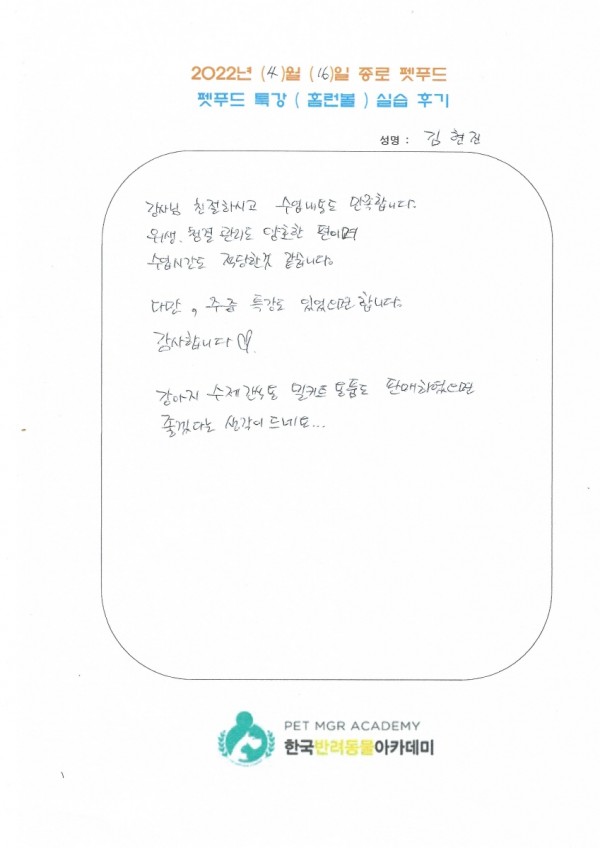 2022년 (4)월 (16)일 종로 펫푸드
펫푸드 특강 ( 홈런볼 ) 실습 후기
성명 : 김현진
강사님 친절하시고 수업내용도 만족합니다.
위생, 청결 관리도 양호한 편이며
수업시간도 적당한것 같습니다.
다만, 주중 특강도 있었으면 합니다.
감사합니다 ♡.
강아지 수제간식도 밀키트 모둠도 판매하였으면
좋겠다는 생각이 드네요...
PET MGR ACADEMY
한국반려동물아카데미